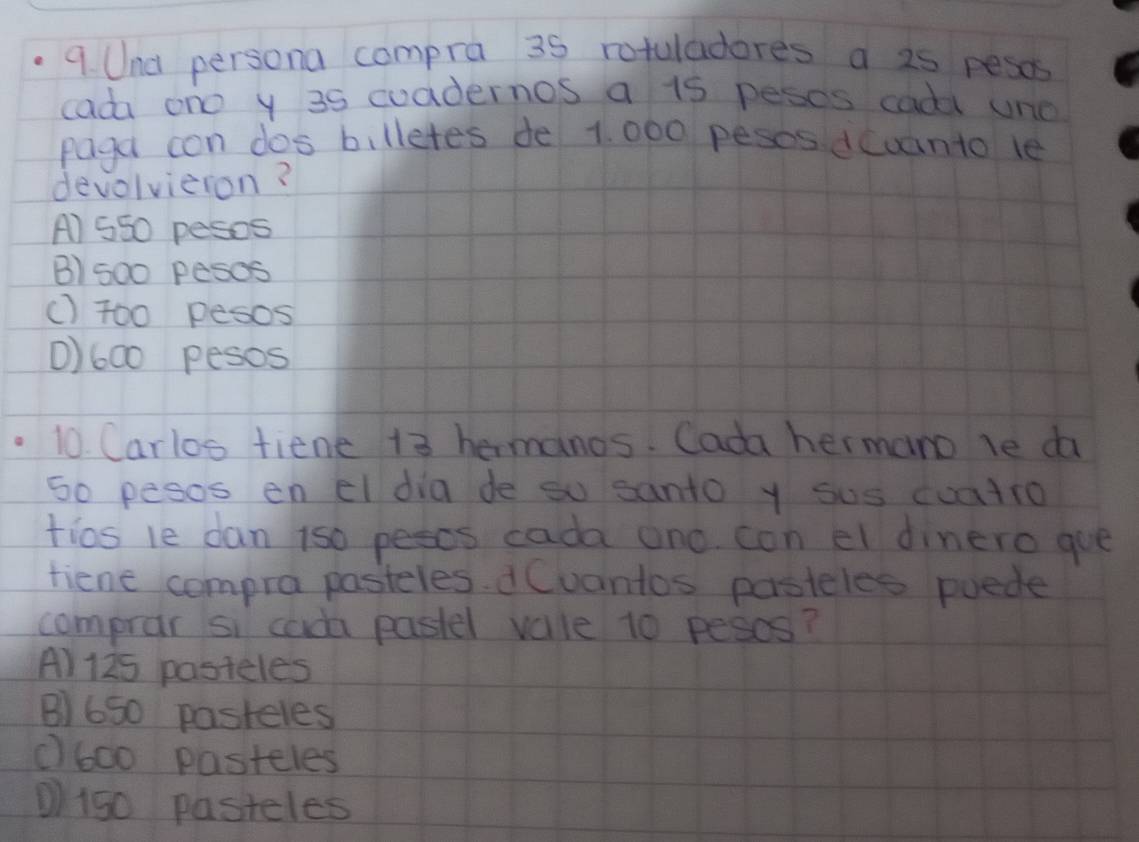 • 9. Una persona compra 35 rotuladores a 25 pesos
cada uno y 35 cuadernos a 15 pesos cada uno
paga con dos billetes de 1.000 pesos ¿Cuanto le
devolvieron?
A) 550 pesos
B) 500 pesos
C) 700 pesos
D) 600 pesos
• 10. Carlos tiene 13 hermanos. Cada hermano le da
50 pesos en el dia de su santo y sus cuatro
tios le dan 150 pesos cada uno. con el dinero que
tiene compra pasteles. ¿Cuantos pasteles puede
comprar si cada pastel vale 10 pesos?
A) 125 pasteles
B) 650 pasteles
C) 600 pasteles
D) 150 pasteles